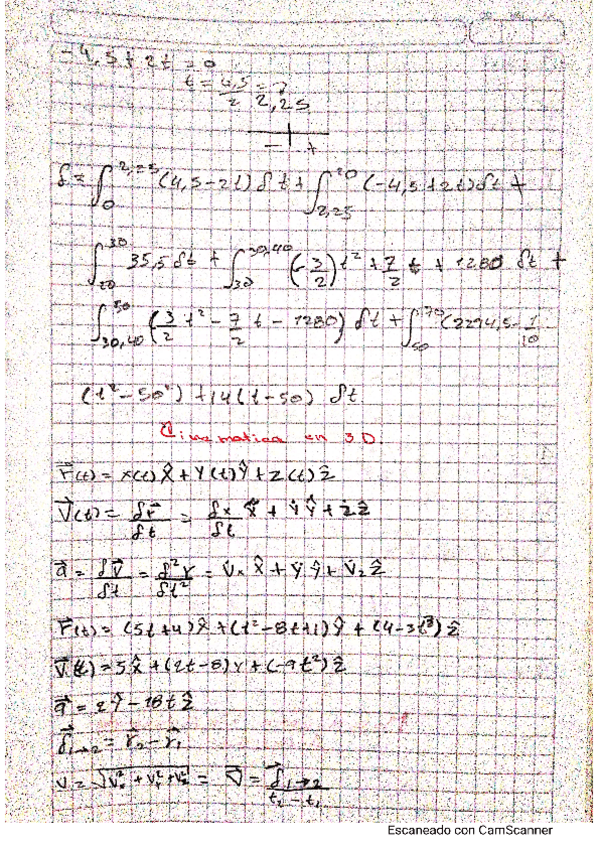 -4,5 + 2t = 0
t = 4,5/2 = 2,25
- +
δ = ∫₀^2,25 (4,5-2t) δt + ∫_2,25^20 (-4,5+2t) δt +
∫_20^30 35,5 δt + ∫_30^30,40 (-3/2) t² + 7/2 t + 1280 δt +
∫_30,40^50 (3/2 t² - 7/2 t - 1280) δt + ∫_50^70 (2294,5 - 1/10
(t² - 50²) + 14(t-50) δt
Cinematica en 3D.
r⃗(t) = x(t) x̂ + Y(t) Ŷ + z(t) ẑ
V⃗(t) = δr⃗/δt = δx/δt x̂ + Ẏ Ŷ + ż ẑ
a⃗ = δv⃗/δt = δ²r/δt² = V̇x x̂ + V̇ ŷ + V̇z ẑ
r⃗(t) = (5t+4) x̂ + (t²-8t+1) ŷ + (4-3t³) ẑ
V⃗(t) = 5x̂ + (2t-8) Y + (-9t²) ẑ
a⃗ = 2Ŷ - 18t ẑ
δ⃗₁→₂ = r⃗₂ - r⃗₁
v = √(Vx² + Vy² + Vz²) = V⃗ = δ⃗₁→₂/(t₂ - t₁)
Escaneado con CamScanner